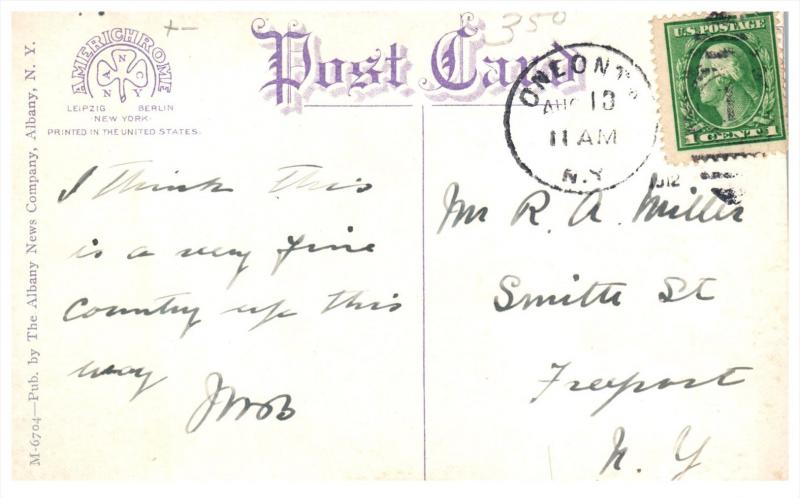 M-6704—Pub. by The Albany News Company, Albany, N. Y.
AMERICHROME
A N N C Y
LEIPZIG BERLIN
NEW YORK
PRINTED IN THE UNITED STATES.
Post Card
350
ONEONTA
AUG 13
11 AM
N.Y.
1912
U.S. POSTAGE
1 CENT 1
I think this
is a very fine
country up this
way
Mr R. A. Miller
Smith St
Freeport
N. Y